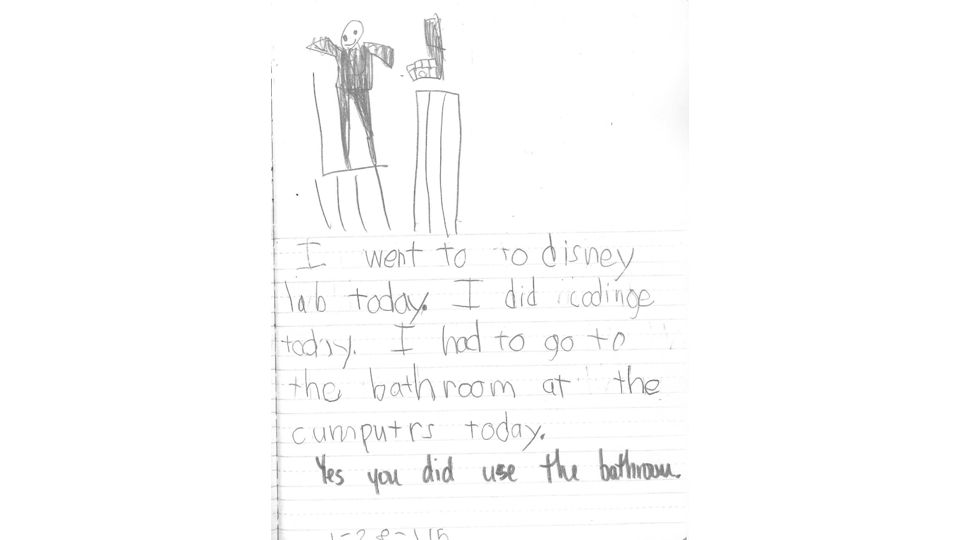 I went to to disney
lab today. I did codinge
today. I had to go to
the bathroom at the
cumputrs today.
Yes you did use the bathroom.